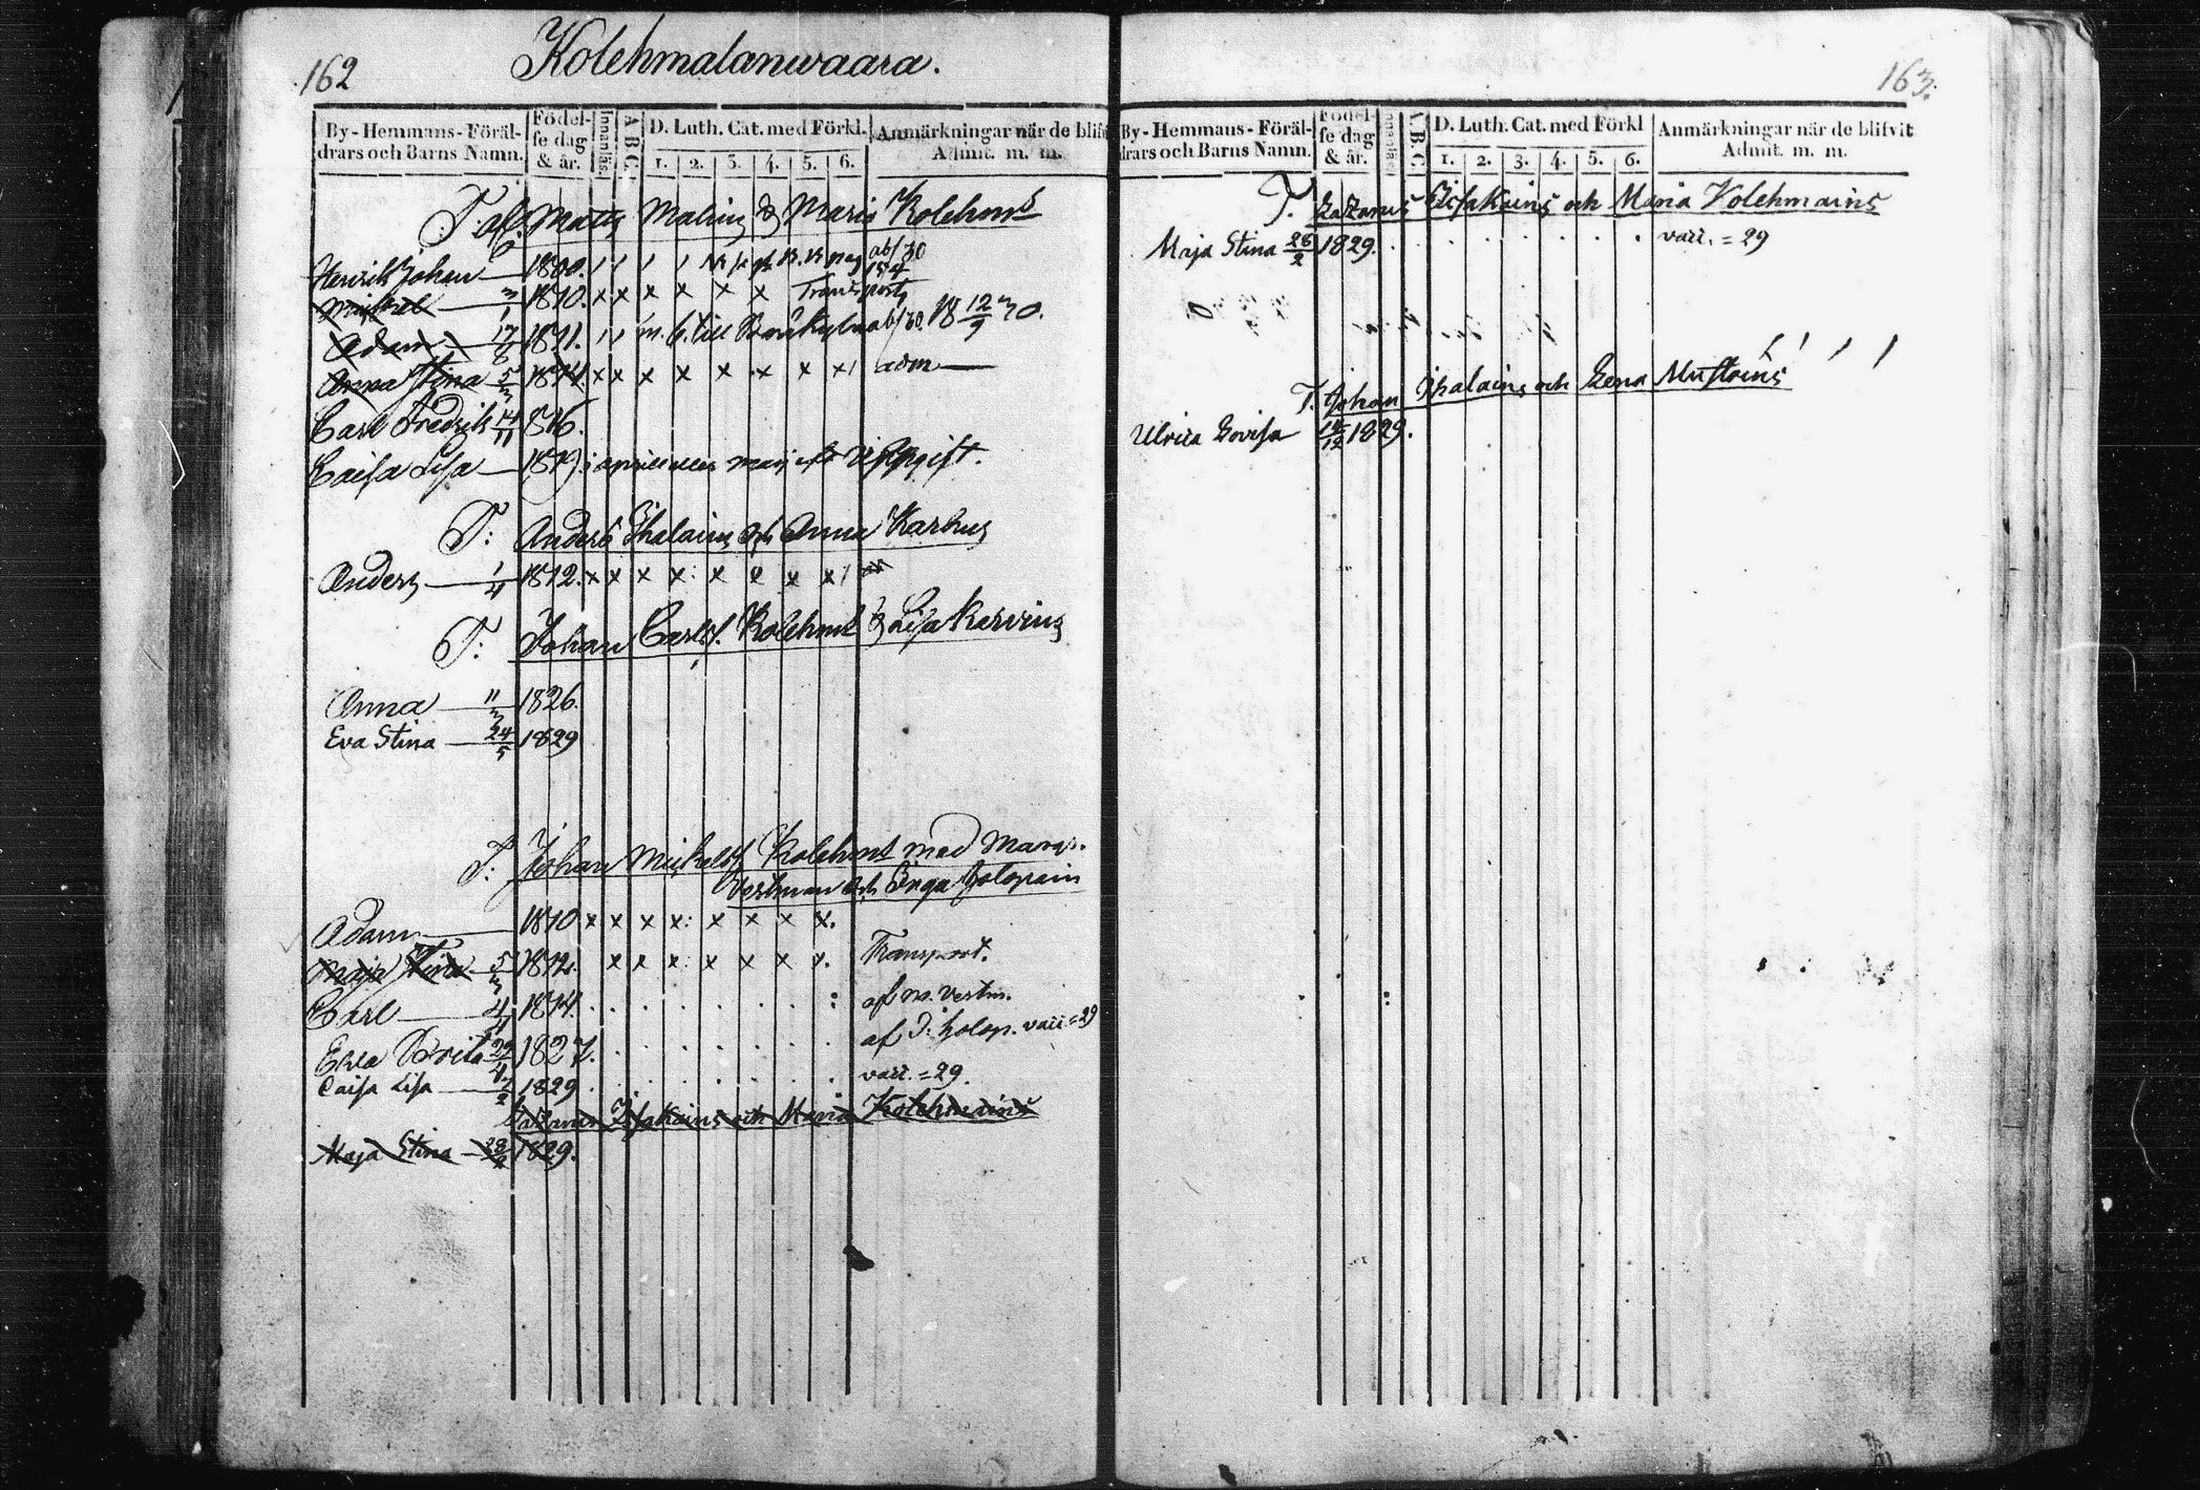 162
Kolehmalanwaara.
By-Hemmans-Föräl-drars och Barns Namn.
Födel-se dag & år.
Innanläs.
A B C.
D. Luth. Cat. med Förkl.
1. 2. 3. 4. 5. 6.
Anmärkningar när de blifv
Admit. m. m.
T. af. Matts Malin & Maria Kolehm
Henrik Johan 1800.
Michel 3/1 1810. x x x x x x Transport
Adam 17/8 1811.
Anna Stina 5/3 1814. x x x x x x x x adm
Carl Fredrik 14/11 816.
Caisa Lisa 1819. i april eller maj uppgift.
T: Anders Ihalain och Anna Karhu
Anders 1/4 1812. x x x x: x x x x
T: Johan Carls. Kolehm & Lisa Karvin
Anna 11/3 1826.
Eva Stina 24/5 1829
T: Johan Mickels. Kolehm med Marg.
Vestman och Inga Holopain
Adam 1810 x x x x: x x x x.
Maja Stina 5/3 1812. x x x: x x x x. Transport.
Carl 4/4 1814. af M. Vestm.
Eva Brita 22/4 1827. af I: Holop. vacc. = 29
Caisa Lisa 1829. vacc. = 29.
Lazarus Issakains och Maria Kolehmains
Maja Stina 28/2 1829.
163.
By-Hemmans-Föräl-drars och Barns Namn.
Födel-se dag & år.
A B C.
D. Luth. Cat. med Förkl
1. 2. 3. 4. 5. 6.
Anmärkningar när de blifvit
Admit. m. m.
T. Lazarus Issakains och Maria Kolehmains
Maja Stina 28/2 1829. vacc. = 29
T. Johan Ihalains och Lena Mustoins
Ulrica Lovisa 14/12 1829.